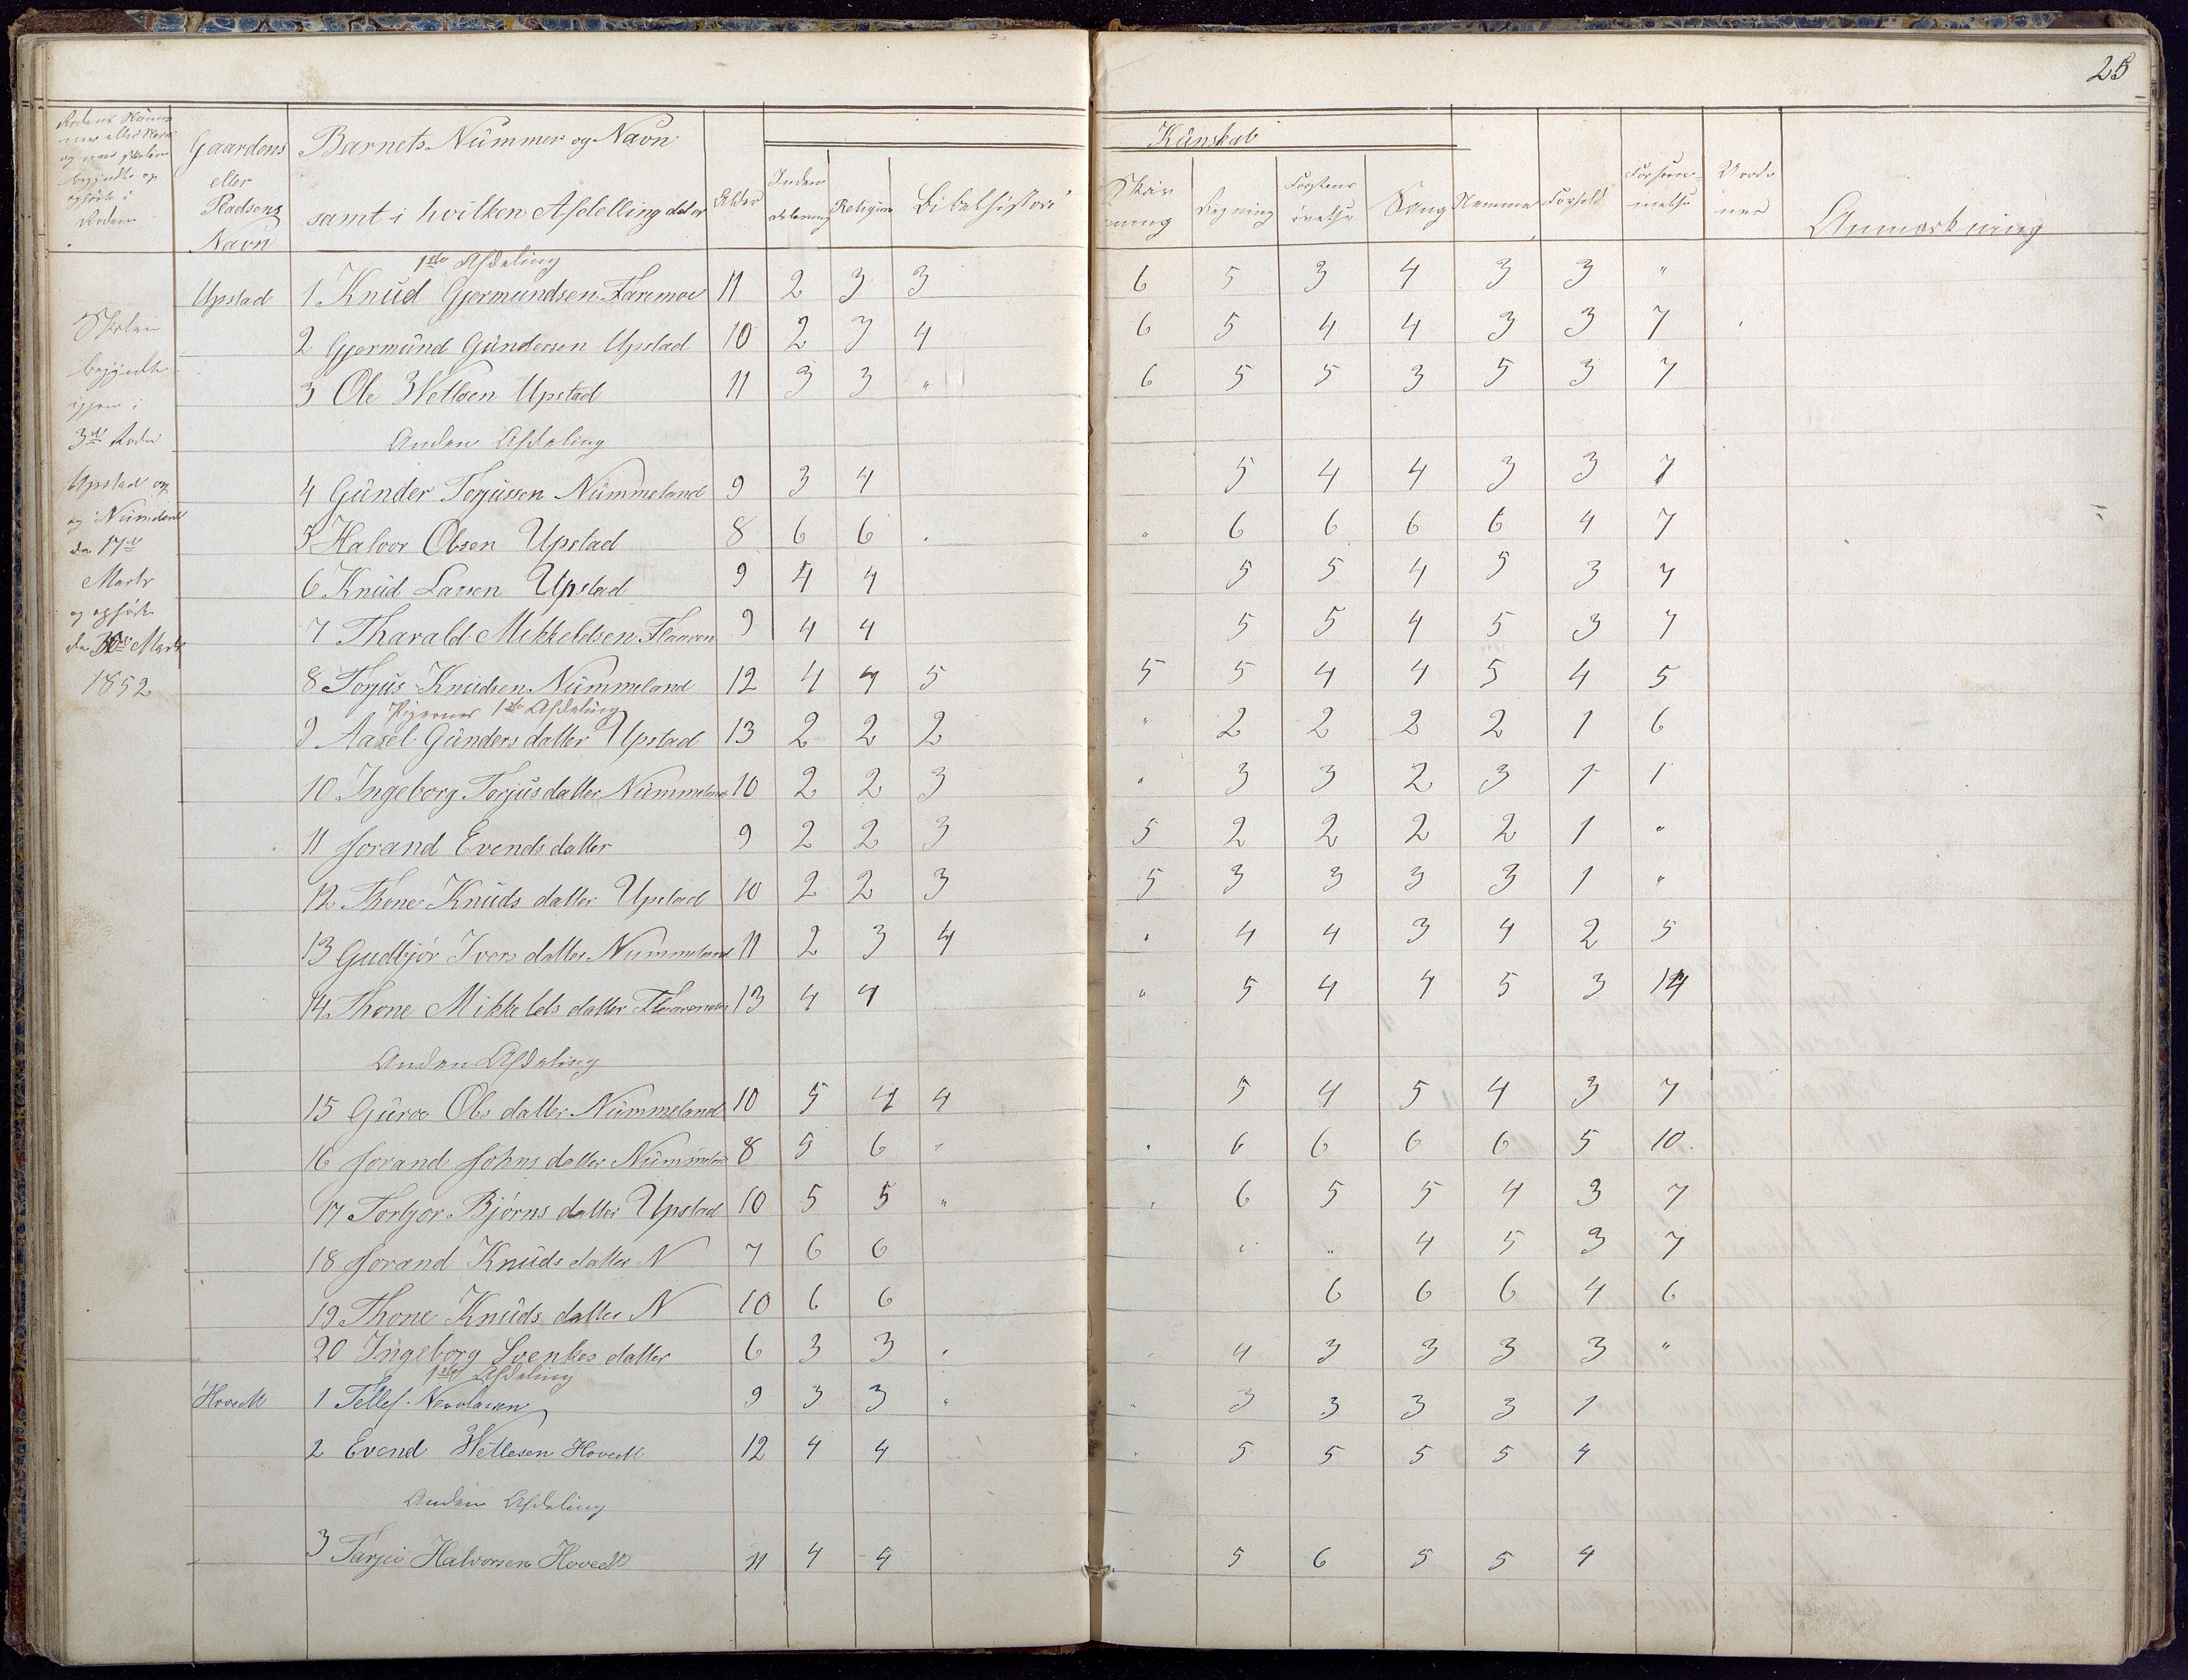 25
Gaardens eller Pladsens Navn
Barnets Nummer og Navn samt i hvilken Afdelling det er
Alder
Religion
Bibelhistorie
Kunskab
Skrivning
Regning
Sang
Nemme
Forhold
Anmærkning
Skolen
begyndte
igjen i
3die Rode
Upstad og
da 17de
Marts
og ophørte
Marts
1852
1ste Afdeling
Upstad 1 Knud Gjermundsen Faremoe 11 2 3 3 6 5 3 4 3 3 "
2 Gjermund Gundersen Upstad 10 2 3 4 6 5 4 4 3 3 7
3 Ole Wetlsen Upstad 11 3 3 " 6 5 5 3 5 3 7
Anden Afdeling
4 Gunder Torjussen Nummeland 9 3 4 5 4 4 3 3 7
5 Halvor Olsen Upstad 8 6 6 . " 6 6 6 6 4 7
6 Knud Larsen Upstad 9 4 4 5 5 4 5 3 7
7 Tharald Mikkeldsen 9 4 4 5 5 4 5 3 7
8 Torjus Knudsen Nummeland 12 4 4 5 5 5 4 4 5 4 5
Pigernes 1ste Afdeling
9 Aasel Gunders datter Upstad 13 2 2 2 " 2 2 2 2 1 6
10 Ingeborg Torjus datter 10 2 2 3 " 3 3 2 3 1 1
11 Jorand Evends datter 9 2 2 3 5 2 2 2 2 1 "
12 Thone Knuds datter Upstad 10 2 2 3 5 3 3 3 3 1 "
13 Gudbjør Ivers datter Nummeland 11 2 3 4 " 4 4 3 4 2 5
14 Thone Mikkels datter 13 4 4 " 5 4 4 5 3 14
Anden Afdeling
15 Guroe Ols datter Nummeland 10 5 4 4 5 4 5 4 3 7
16 Jorand Johns datter 8 5 6 " . 6 6 6 6 5 10.
17 Torbjor Bjørns datter Upstad 10 5 5 " " 6 5 5 4 3 7
18 Jorand Knuds datter N 7 6 6 " " 4 5 3 7
19 Thone Knuds datter N 10 6 6 6 6 6 4 6
20 Ingeborg Svenkes datter 6 3 3 . 4 3 3 3 3 "
1ste Afdeling
1 Tellef 9 3 3 " " 3 3 3 3 1
2 Evend Wetlesen 12 4 4 5 5 5 5 4
Anden Afdeling
3 Tarjei Halvorsen 11 4 4 5 6 5 5 4